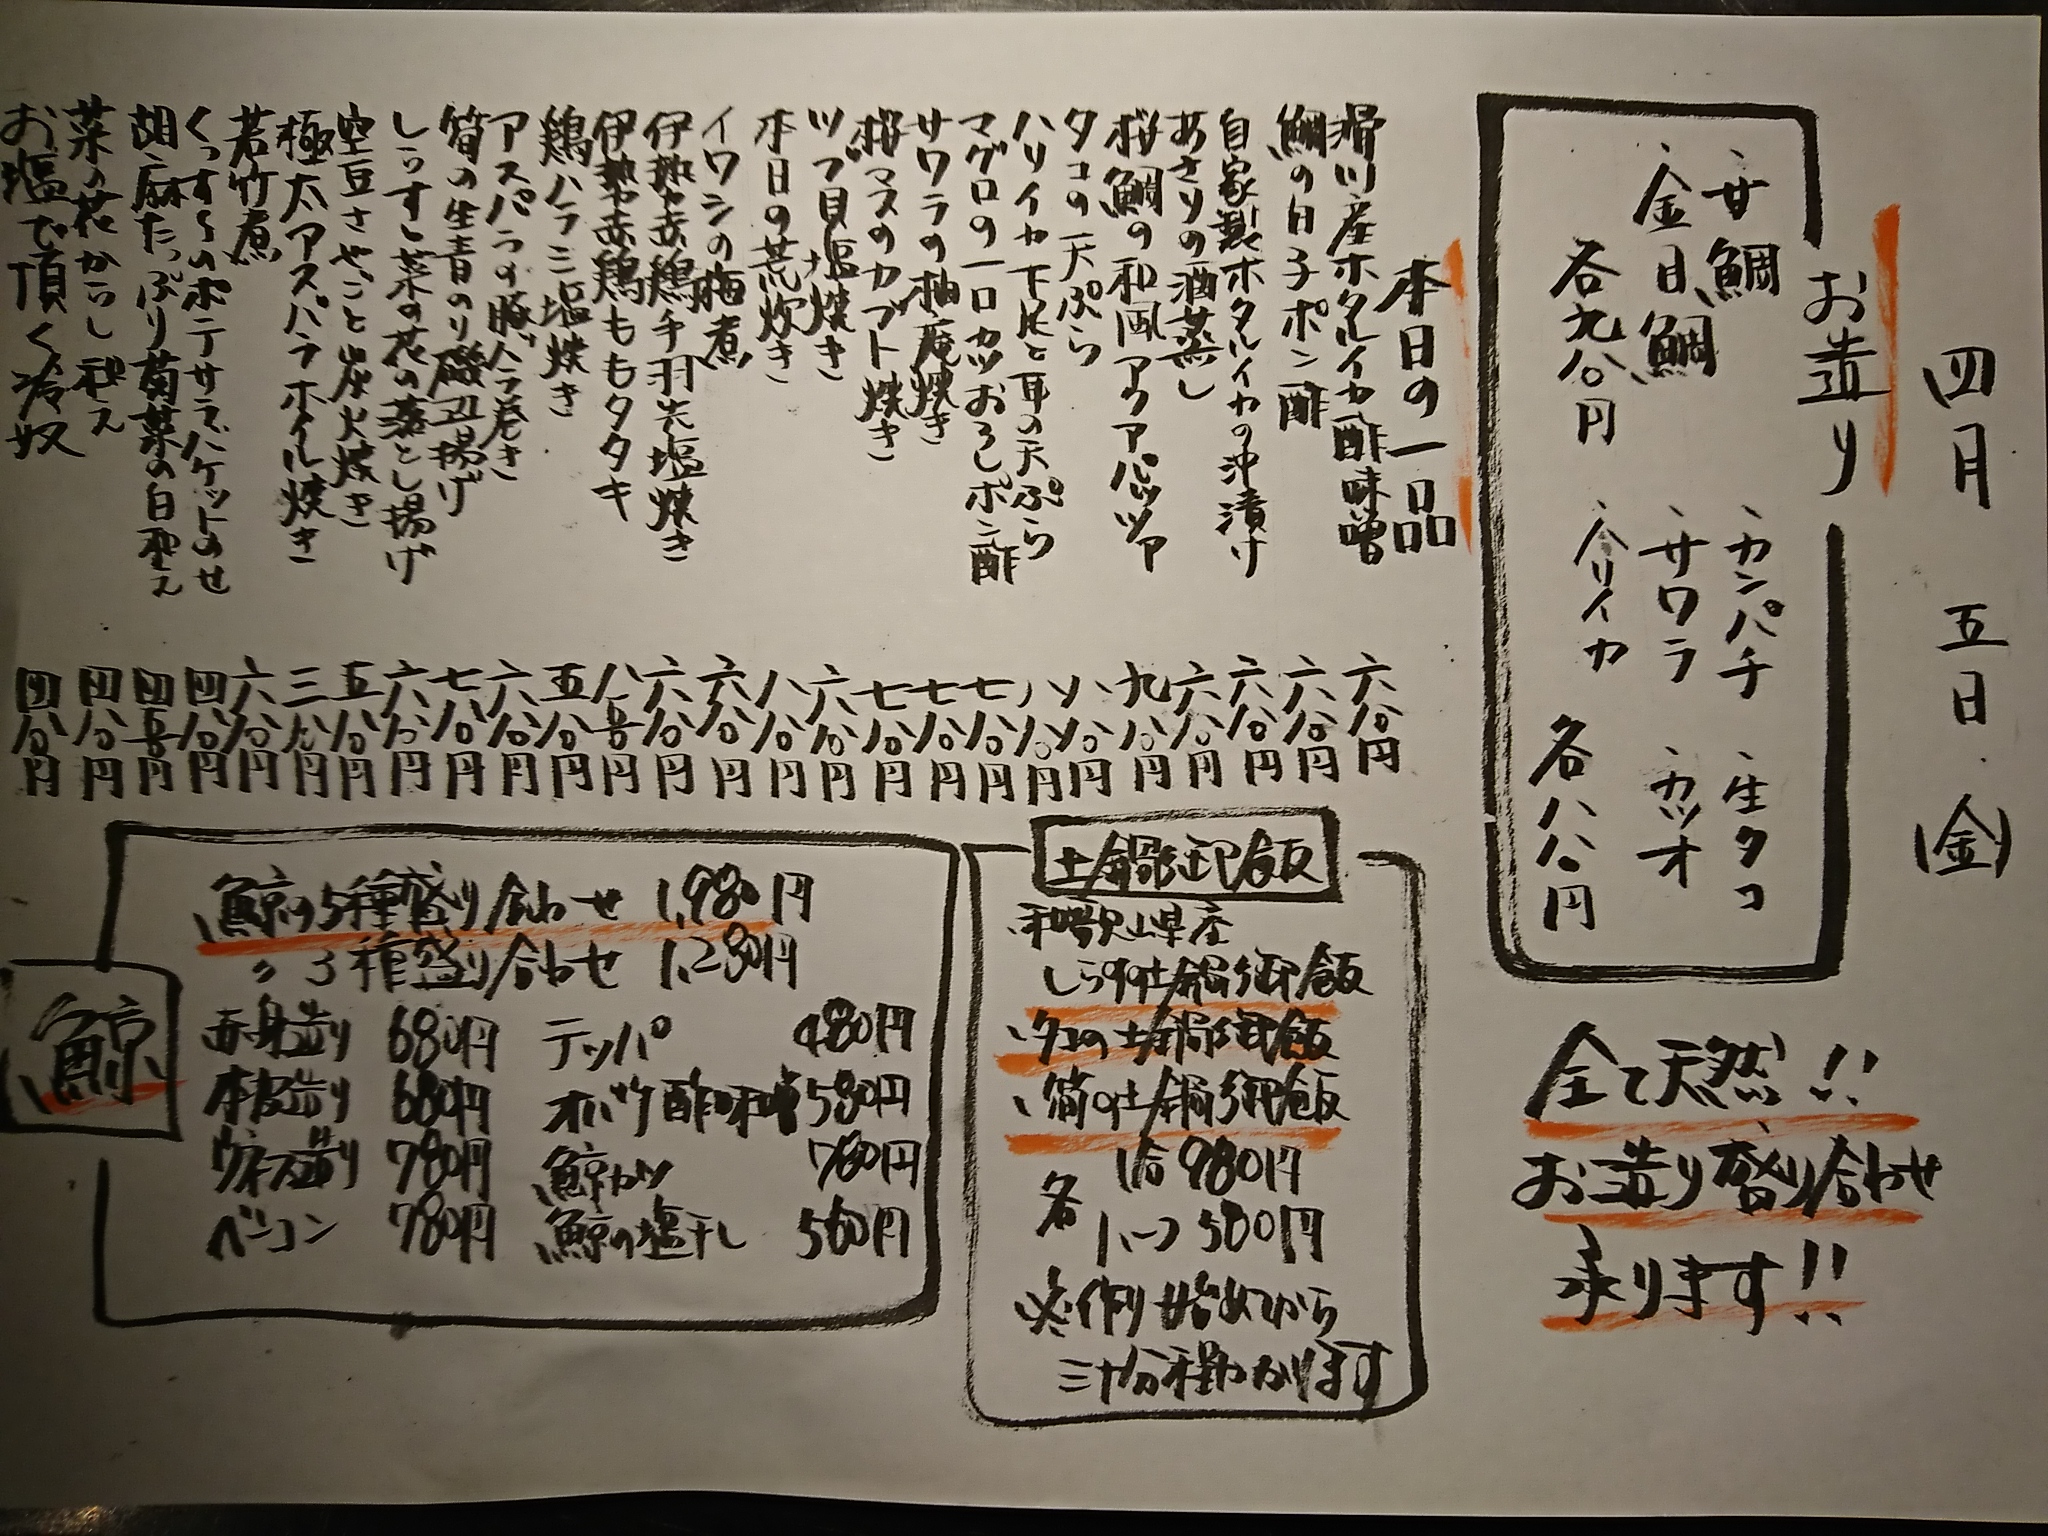 四月 五日 (金)
お造り
、甘鯛 、カンパチ 、生タコ
、金目鯛 、サワラ 、カツオ
各九八〇円 、ハリイカ 各八八〇円
全て天然!!
お造り盛り合わせ
承ります!!
本日の一品
滑川産ホタルイカ酢味噌 六八〇円
鯛の白子ポン酢 六八〇円
自家製ホタルイカの沖漬け 六八〇円
あさりの酒蒸し 六八〇円
桜鯛の和風アクアパッツァ 九八〇円
タコの天ぷら 八八〇円
ハリイカ下足と耳の天ぷら 八八〇円
マグロの一口カツおろしポン酢 七八〇円
サワラの柚庵焼き 七八〇円
桜マスのカブト焼き 七八〇円
ツブ貝塩焼き 六八〇円
本日の荒炊き 八八〇円
イワシの梅煮 六八〇円
伊勢赤鶏手羽先塩焼き 六八〇円
伊勢赤鶏ももタタキ 八五〇円
鶏ハラミ塩焼き 五八〇円
アスパラの豚バラ巻き 六八〇円
筍の生青のり磯辺揚げ 七八〇円
しらすと菜の花の落とし揚げ 六八〇円
空豆さやごと炭火焼き 五八〇円
極太アスパラホイル焼き 三八〇円
若竹煮 六八〇円
くっすんのポテサラバケットのせ 四八〇円
胡麻たっぷり菊菜の白和え 四五〇円
菜の花からし和え 四八〇円
お塩で頂く冷奴 四八〇円
土鍋御飯
和歌山県産
しらすの土鍋御飯
、タコの土鍋御飯
、筍の土鍋御飯
各 1合 980円
ハーフ 580円
※作り始めてから
三十分程かかります
鯨
、鯨の5種盛り合わせ 1,980円
〃 3種盛り合わせ 1,280円
赤身造り 680円 テッパ 480円
本皮造り 680円 オバケ酢味噌 580円
ウネス造り 780円 鯨カツ 780円
ベーコン 780円 鯨の塩干し 580円